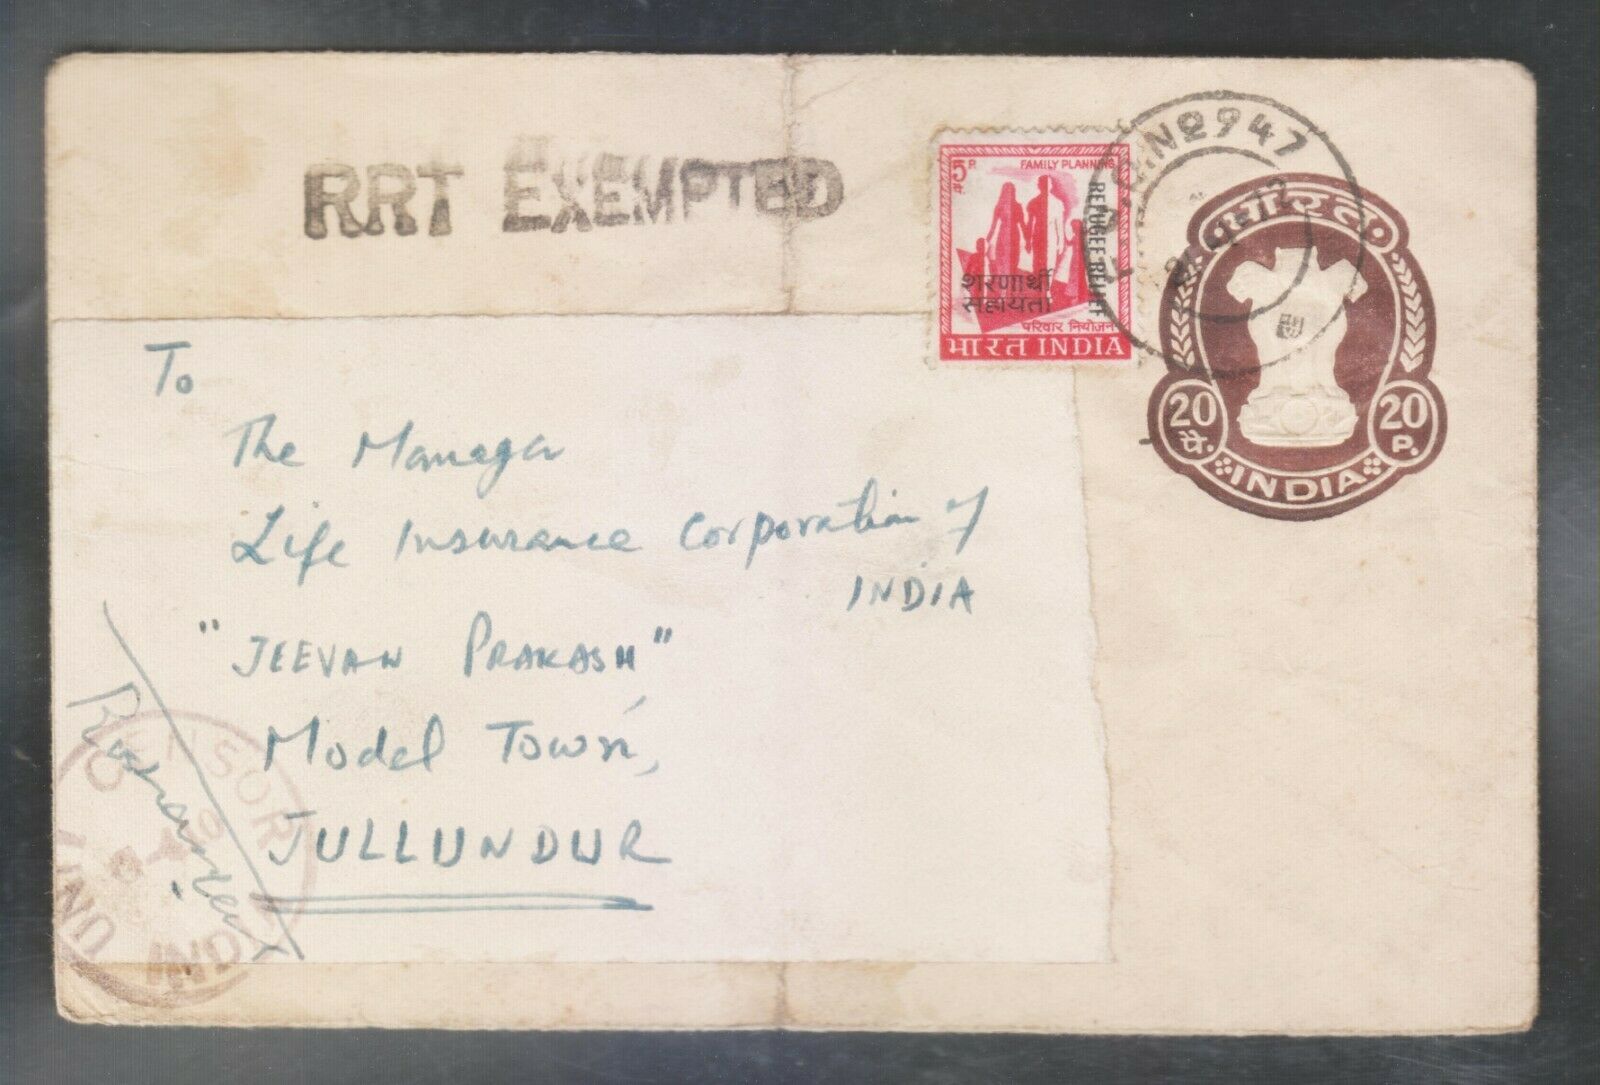 RRT EXEMPTED
5 P.
पै.
FAMILY PLANNING
REFUGEE RELIEF
शरणार्थी
सहायता
परिवार नियोजन
भारत INDIA
No 947
भारत
20
पै.
20
P.
INDIA
To
The Manager
Life Insurance Corporation of
INDIA
"JEEVAN PRAKASH"
Model Town,
JULLUNDUR
CENSOR
UNIT
IND